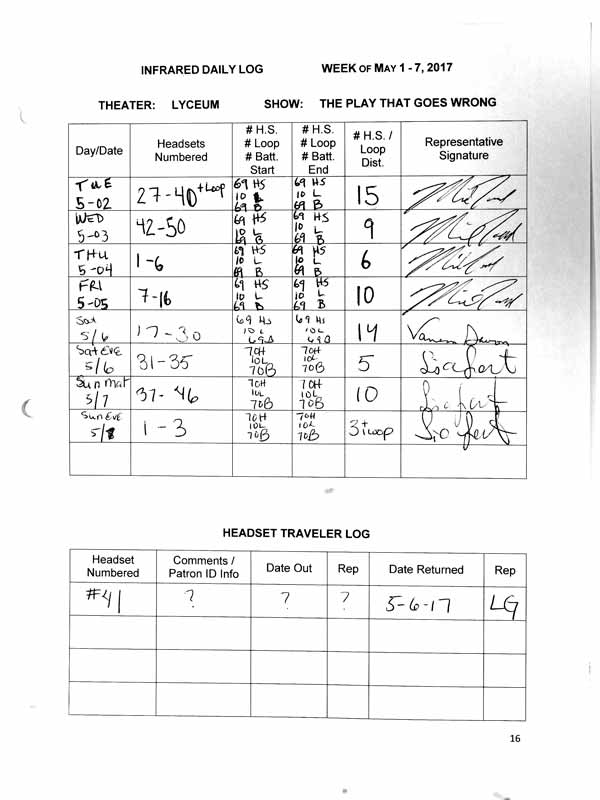 INFRARED DAILY LOG WEEK OF MAY 1 - 7, 2017
THEATER: LYCEUM SHOW: THE PLAY THAT GOES WRONG
Day/Date Headsets Numbered # H.S. # Loop # Batt. Start # H.S. # Loop # Batt. End # H.S. / Loop Dist. Representative Signature
TUE 5-02 27-40 + Loop 69 HS 10 L 69 B 69 HS 10 L 69 B 15
WED 5-03 42-50 69 HS 10 L 69 B 69 HS 10 L 69 B 9
THU 5-04 1-6 69 HS 10 L 69 B 69 HS 10 L 69 B 6
FRI 5-05 7-16 69 HS 10 L 69 B 69 HS 10 L 69 B 10
Sat 5/6 17-30 69 HS 10L 69B 69 HS 10L 69B 14
Sat Eve 5/6 31-35 70H 10L 70B 70H 10L 70B 5
Sun Mat 5/7 37-46 70H 10L 70B 70H 10L 70B 10
Sun Eve 1-3 70H 10L 70B 70H 10L 70B 3+Loop
HEADSET TRAVELER LOG
Headset Numbered Comments / Patron ID Info Date Out Rep Date Returned Rep
#41 ? ? ? 5-6-17 LG
16